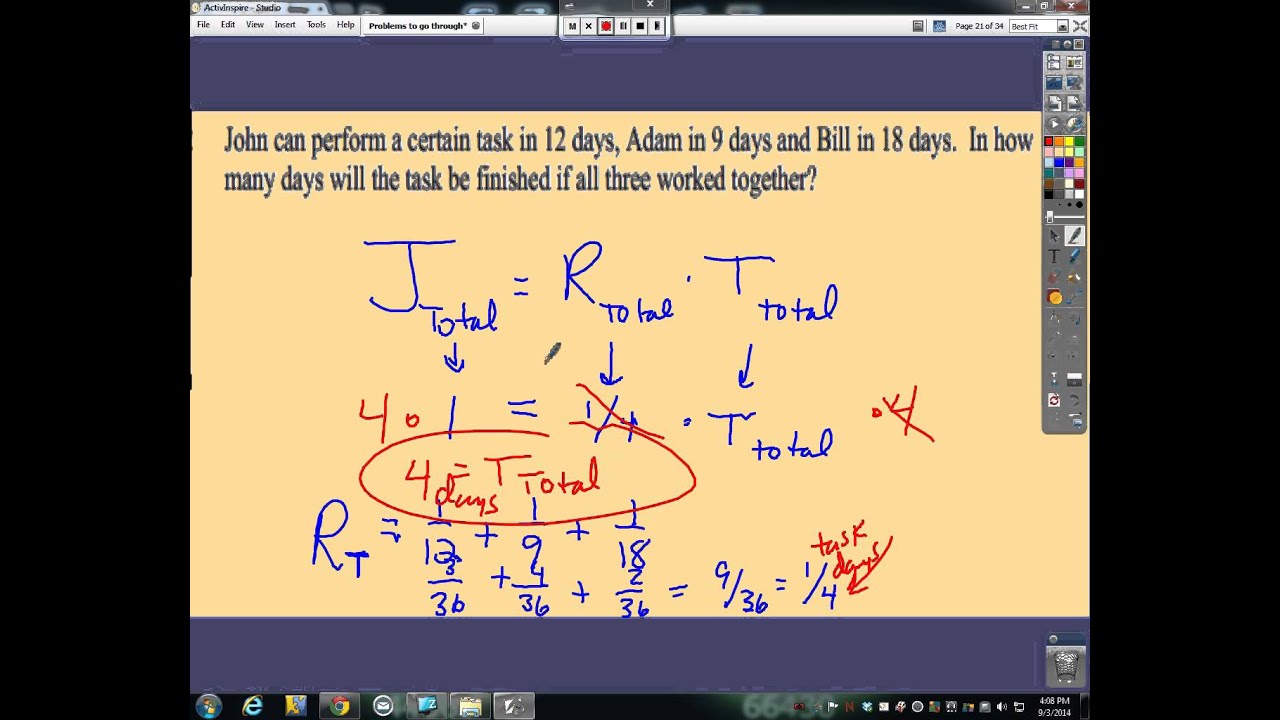 ActivInspire - Studio
File Edit View Insert Tools Help Problems to go through* Page 21 of 34 Best Fit
John can perform a certain task in 12 days, Adam in 9 days and Bill in 18 days. In how
many days will the task be finished if all three worked together?
J Total = R Total · T total
4 · 1 = 1/4 · T total · 4
4 days = T Total
R T = 1/12 + 1/9 + 1/18
3/36 + 4/36 + 2/36 = 9/36 = 1/4 task days
4:08 PM
9/3/2014